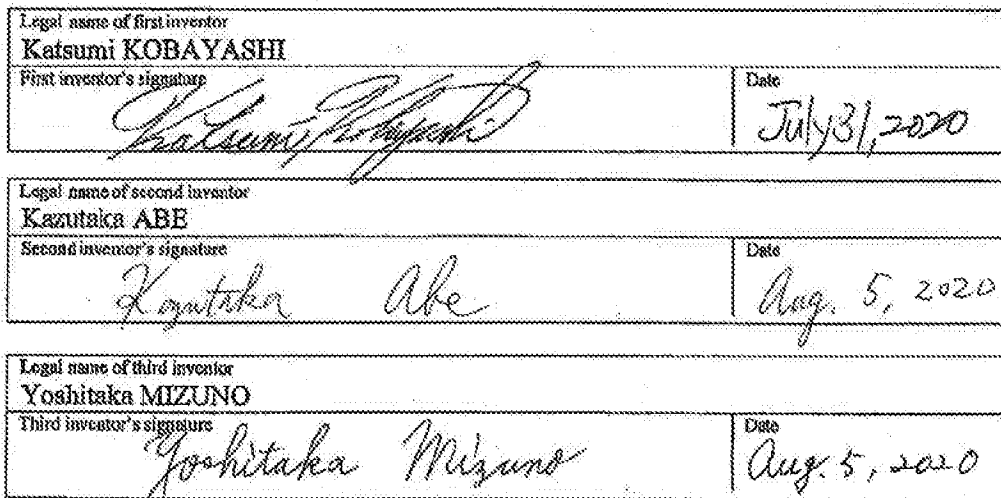 Legal name of first inventor
Katsumi KOBAYASHI
First inventor's signature
Date
Katsumi Kobayashi
July 31, 2020
Legal name of second inventor
Kazutaka ABE
Second inventor's signature
Date
Kazutaka Abe
Aug. 5, 2020
Legal name of third inventor
Yoshitaka MIZUNO
Third inventor's signature
Date
Yoshitaka Mizuno
Aug. 5, 2020